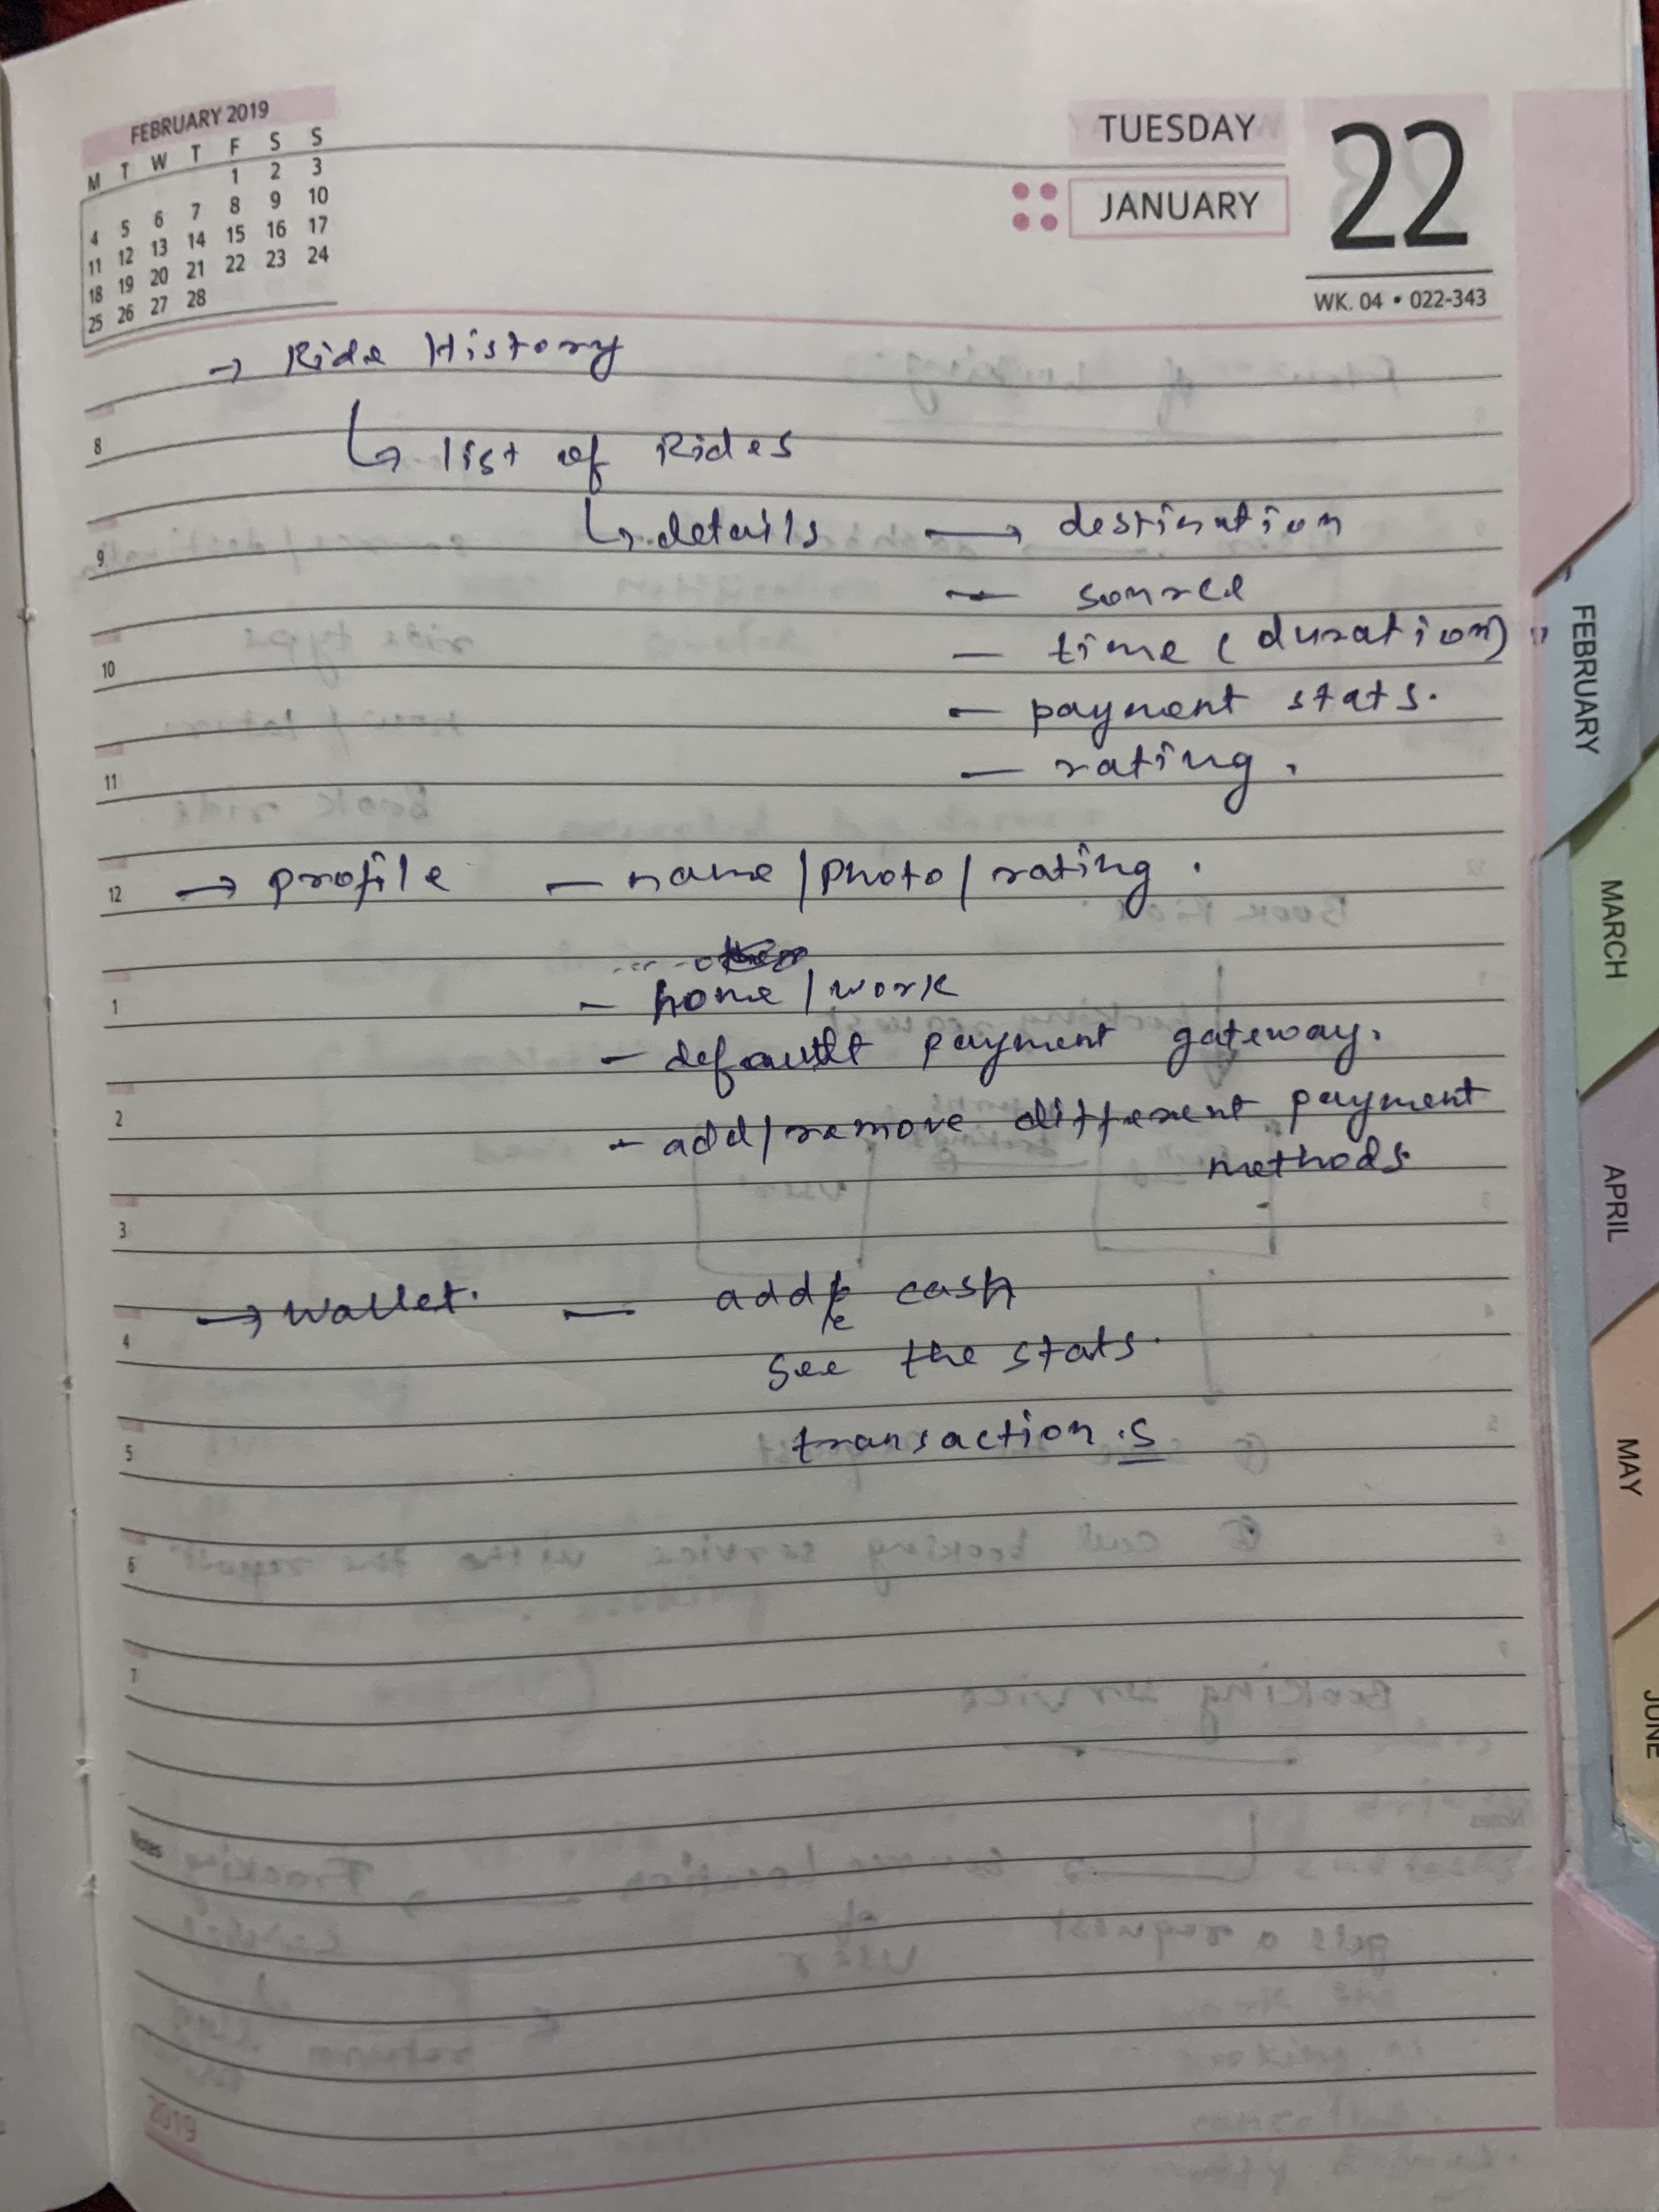 FEBRUARY 2019
M T W T F S S
1 2 3
4 5 6 7 8 9 10
11 12 13 14 15 16 17
18 19 20 21 22 23 24
25 26 27 28
TUESDAY
JANUARY
22
WK. 04 • 022-343
→ Ride History
8
↳ list of Rides
↳ details → destination
9
— source
— time (duration)
10
— payment stats.
— rating.
11
12 → profile — name/photo/rating.
— home/work
1
— default payment gateway.
2
— add/remove different payment
methods
3
→ wallet. — add cash
4
see the stats.
transaction.s
5
6
7
Notes
2019
FEBRUARY
MARCH
APRIL
MAY
JUNE